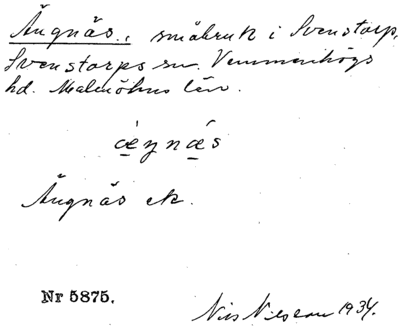 Ängnäs., småbruk i Svenstorp,
Svenstorps sn. Vemmenhögs
hd. Malmöhus län.
æŋnæs
Ängnäs ek.
Nr 5875.
Nils Nilsson 1934.